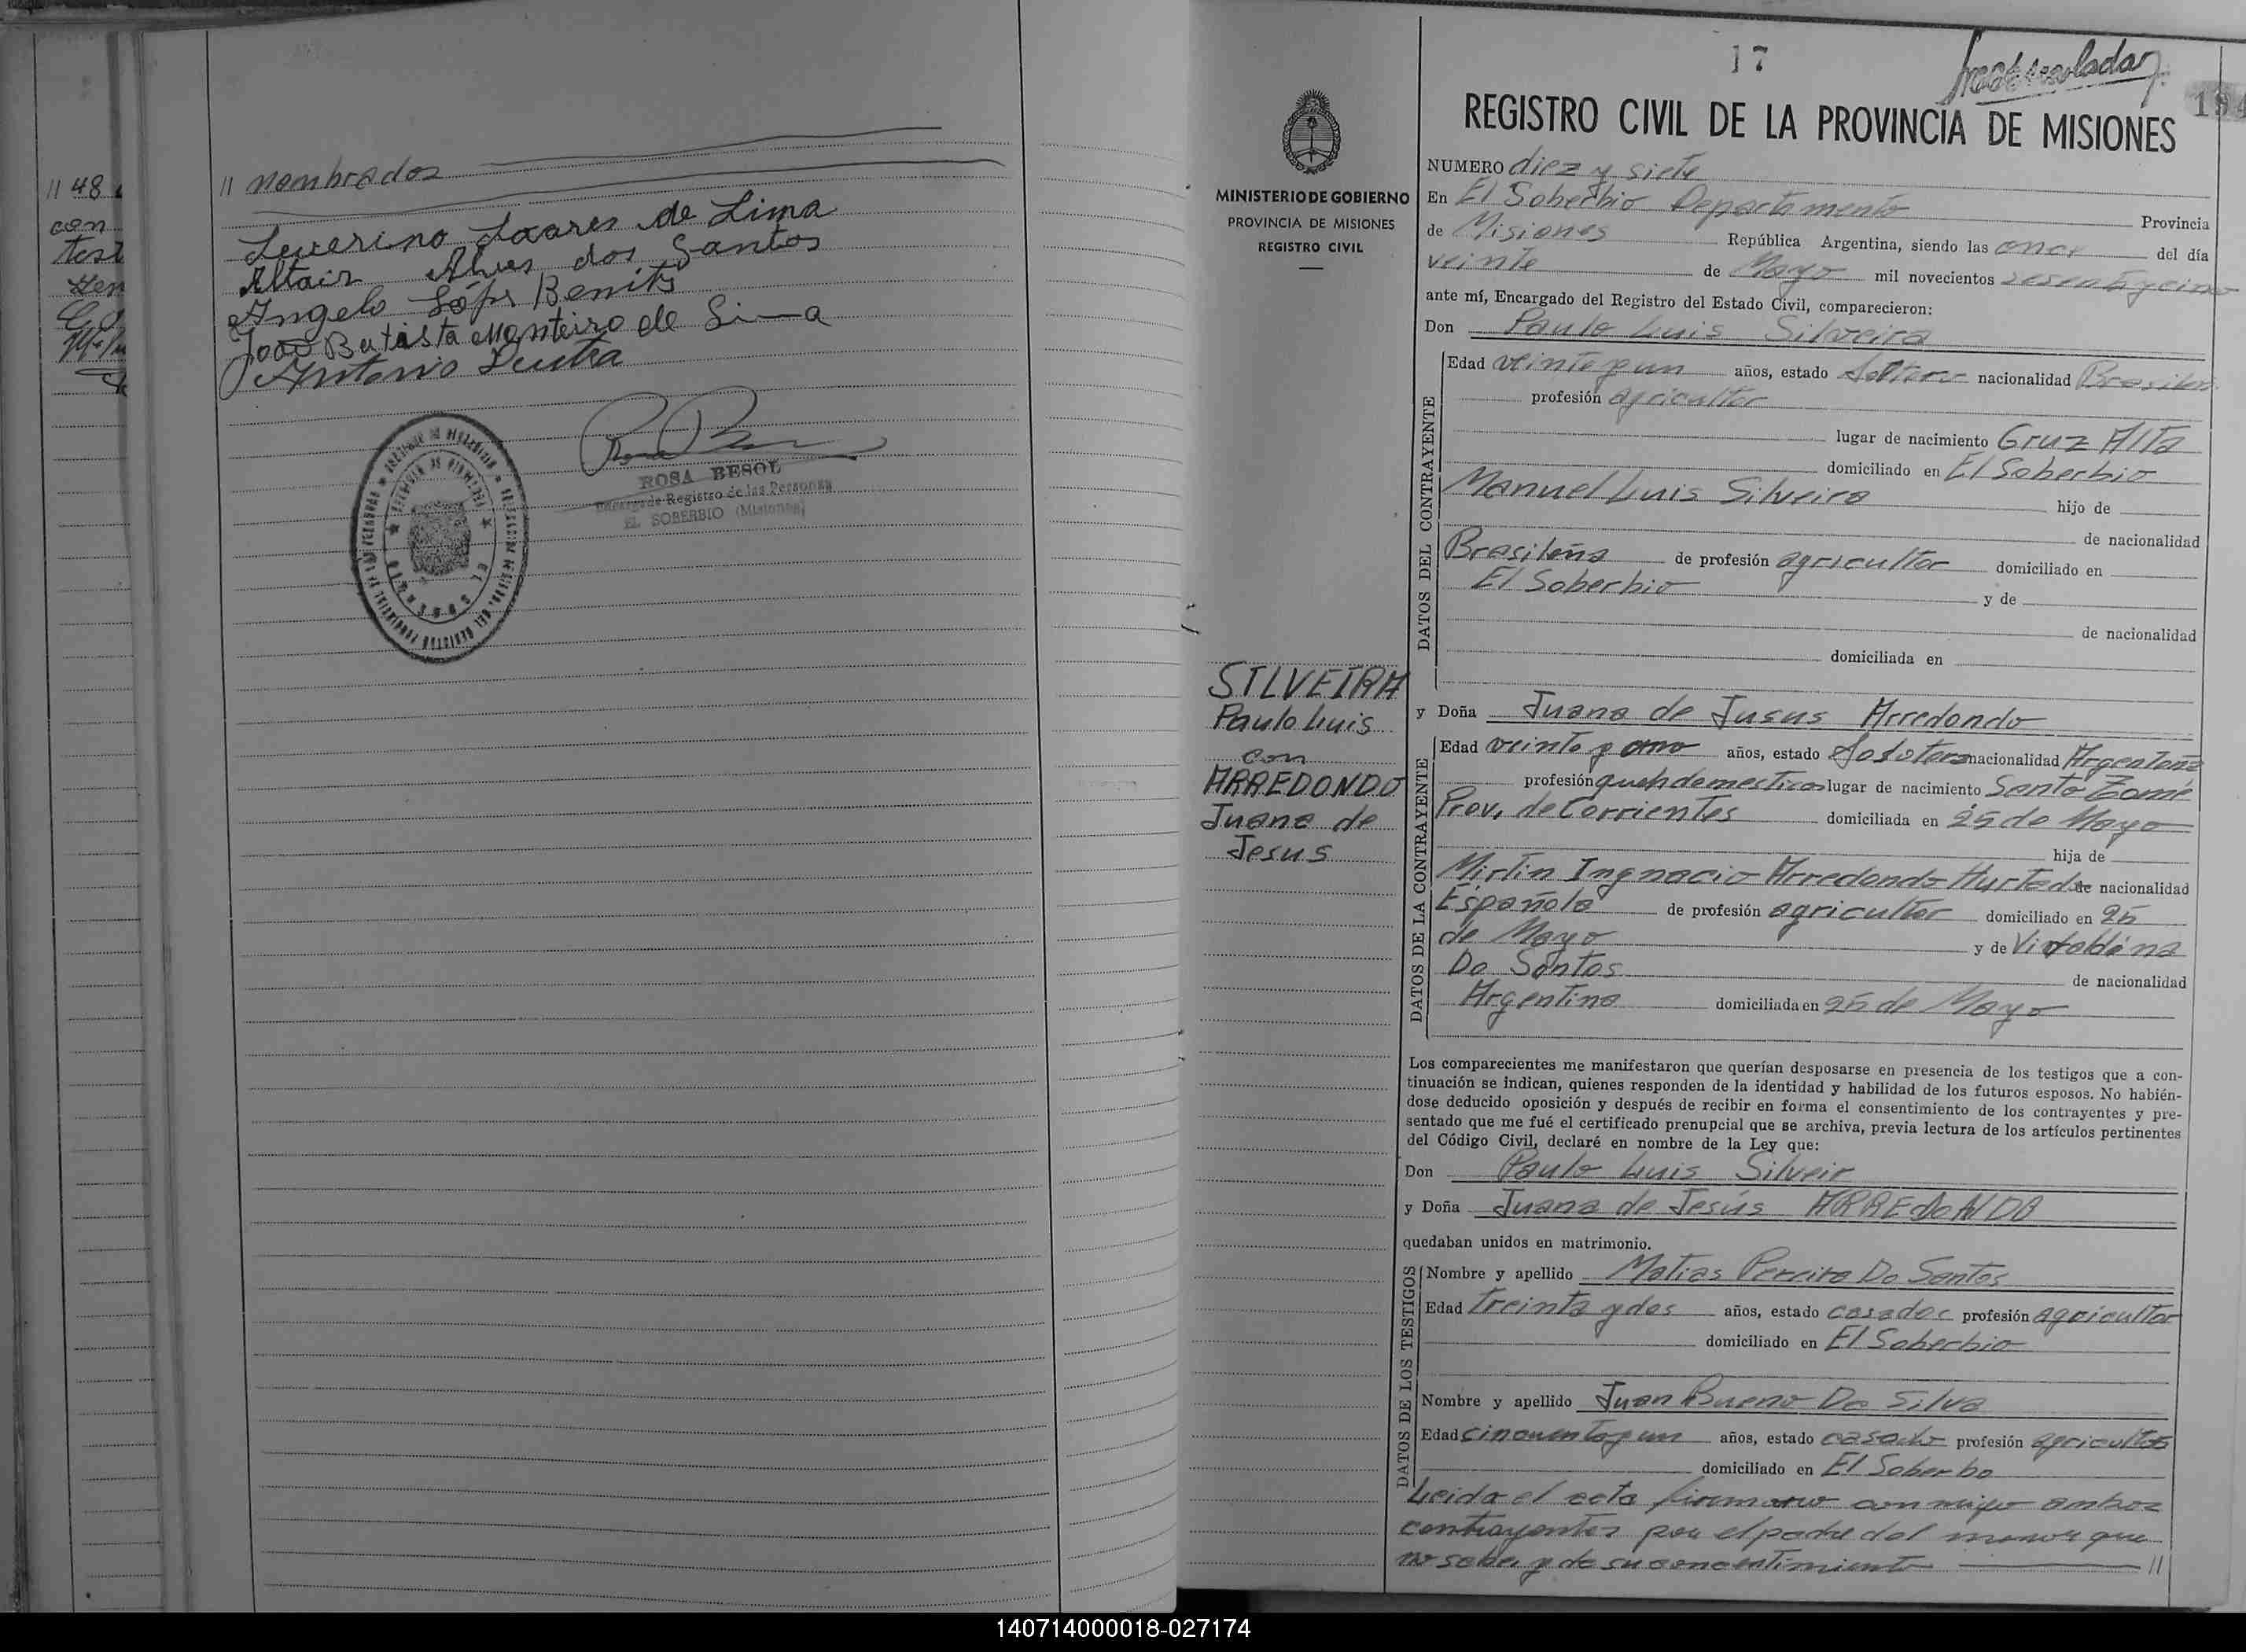 // 48
con
// nombrados
Severino Soares de Lima
Altair Alves dos Santos
Angelo Lópes Benits
João Batista Monteiro de Lima
Antonio Dutra
ROSA BESOL
Encargada Registro de las Personas
EL SOBERBIO (Misiones)
EL SOBERBIO
MINISTERIO DE GOBIERNO
PROVINCIA DE MISIONES
REGISTRO CIVIL
SILVEIRA
Paulo Luis
con
ARREDONDO
Juana de
Jesus
17
194
REGISTRO CIVIL DE LA PROVINCIA DE MISIONES
NUMERO diez y siete
En El Soberbio Departamento Provincia
de Misiones República Argentina, siendo las once del día
veinte de Mayo mil novecientos
ante mí, Encargado del Registro del Estado Civil, comparecieron:
Don Paulo Luis Silveira
DATOS DEL CONTRAYENTE
Edad veinte y un años, estado Soltero nacionalidad
profesión agricultor
lugar de nacimiento Cruz Alta
domiciliado en El Soberbio
Manuel Luis Silveira hijo de
de nacionalidad
Brasileña de profesión agricultor domiciliado en
El Soberbio y de
de nacionalidad
domiciliada en
y Doña Juana de Jusus Arredondo
DATOS DE LA CONTRAYENTE
Edad veinte y años, estado nacionalidad
profesión lugar de nacimiento Santo Tomé
Prov. de Corrientes domiciliada en 25 de Mayo
hija de
Mirtin Ingnacio Arredondo Hurtado de nacionalidad
Española de profesión agricultor domiciliado en 25
de Mayo y de
Do Santos de nacionalidad
Argentina domiciliada en 25 de Mayo
Los comparecientes me manifestaron que querían desposarse en presencia de los testigos que a con-
tinuación se indican, quienes responden de la identidad y habilidad de los futuros esposos. No habién-
dose deducido oposición y después de recibir en forma el consentimiento de los contrayentes y pre-
sentado que me fué el certificado prenupcial que se archiva, previa lectura de los artículos pertinentes
del Código Civil, declaré en nombre de la Ley que:
Don Paulo Luis Silveir
y Doña Juana de Jesús ARREDONDO
quedaban unidos en matrimonio.
DATOS DE LOS TESTIGOS
Nombre y apellido Matias Pereira Do Santos
Edad treinta y dos años, estado casado profesión agricultor
domiciliado en El Soberbio
Nombre y apellido Juan Bueno Da Silva
Edad cincuenta y un años, estado casado profesión agricultor
domiciliado en El Soberbo
Leida el acta firmaron conmigo ambos
contrayentes por el padre del menor que
no sabe y da su concentimiento //
140714000018-027174